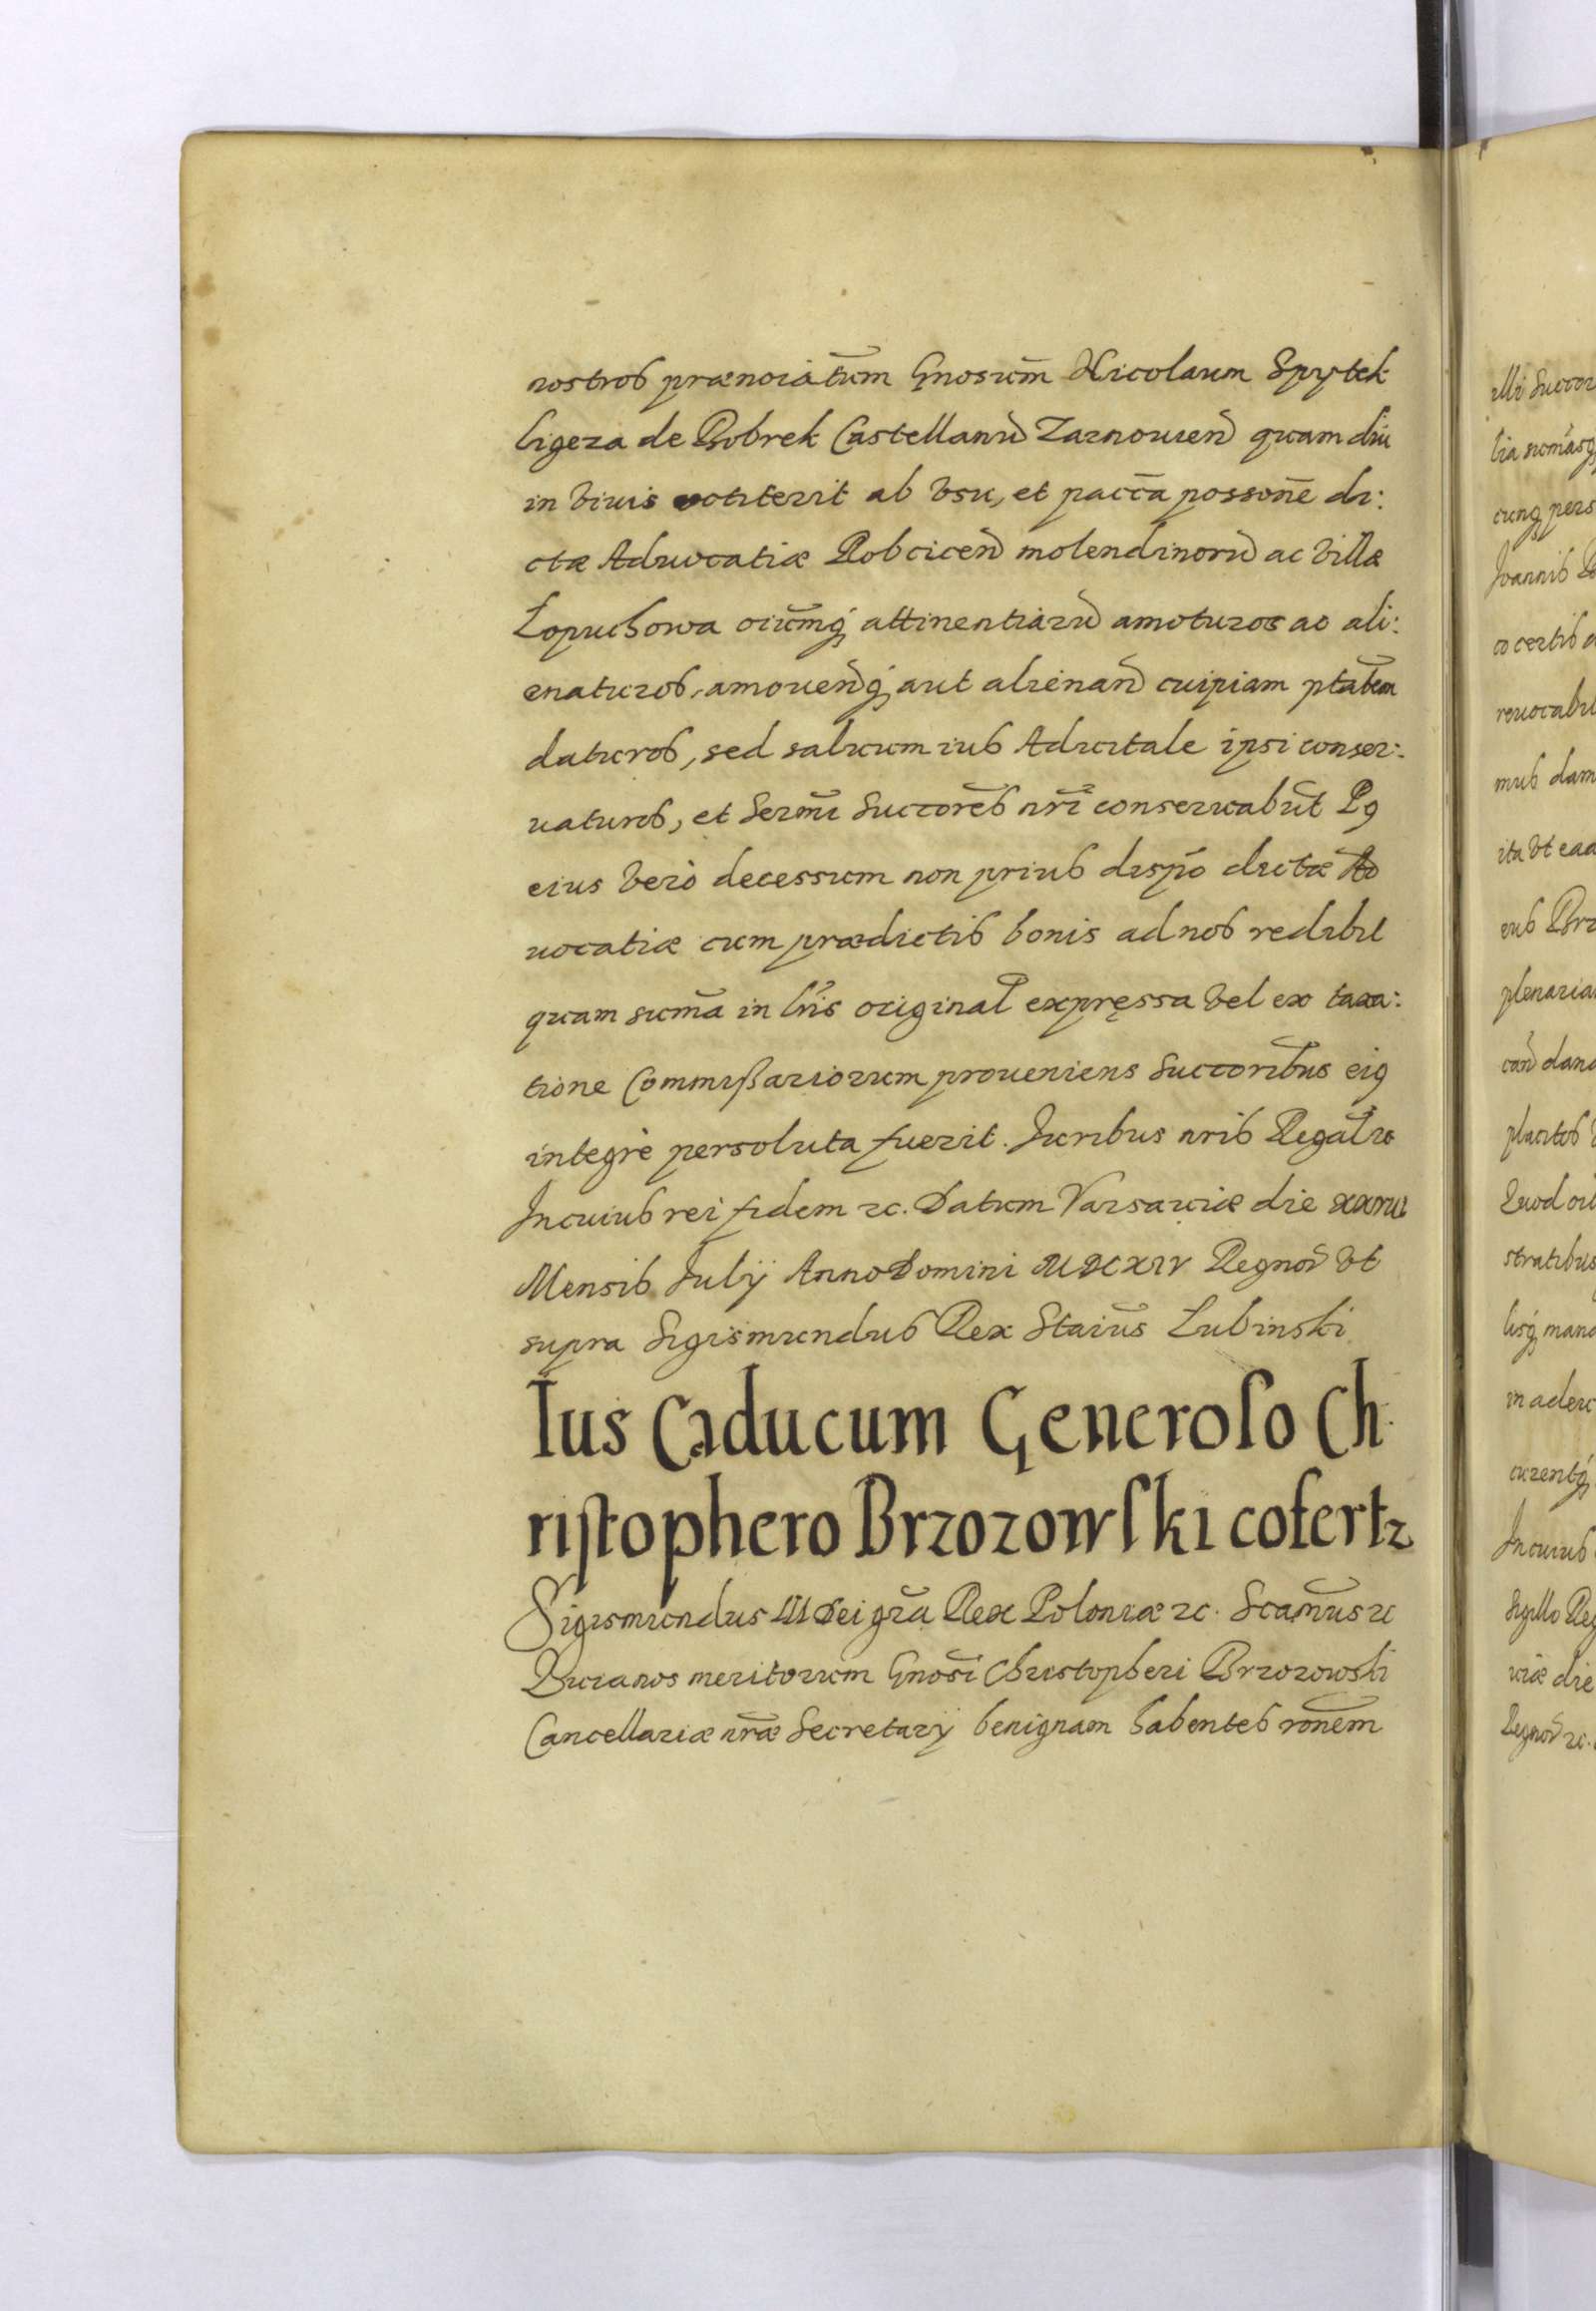 nostros prænoiatũm Gnosum̃ Nicolaum Spytek
Ligeza de Bobrek Castellanũ Zarnouien̄ quam diu
in viuis extiterit ab vsu, et paccã possoñe di:
ctæ Aduocatiæ Robcicen̄ molendinorũ ac villæ
Łopuchowa oiũmq́ attinentiarũ amoturos ac ali:
enaturos, amouen̄q́ aut alienan̄ cuipiam ptãtem
daturos, sed saluum ius Aduitale ipsi conser:
uaturos, et Sermĩ Succorẽs nrĩ conseruabũt Pꝰ
eius verò decessum non prius dispõ dictæ Ad
uocatiæ cum prædictis bonis ad nos redibit
quam sum̃a in lrĩs original̃ expręssa vel ex taxa:
tione Commißariorum proueniens Succoribus eiꝰ
integrè persoluta fuerit. Iuribus nris Regal̃
In cuius rei fidem ꝛc. Datum Varsauiæ die
Mensis Iulij Anno Domini MDCXIV Regnor̄ vt
supra Sigismundus Rex Staĩus Lubinski
Ius Caducum Generoso Ch
ristophero Brzozowski cofertꝛ
Sigismundus III Dei grã Rex Poloniæ ꝛc. Scamũs ꝛc
Quia nos meritorum Gnosĩ Christopheri Brzozowski
Cancellariæ nrãe Secretarij benignam habentes ronẽm
illi Succor
lia sum̃asq́
cunq́ pers
Ioannis
co certis
reuocabil
mus dam
ita vt ead
eus Brz
plenaria
can̄ dan
placitos
Quod oi
stratibus
lisq́ man
in aderc
curentq́
In cuius
Sigillo Reg
uiæ die
Regnor̄ ꝛc.